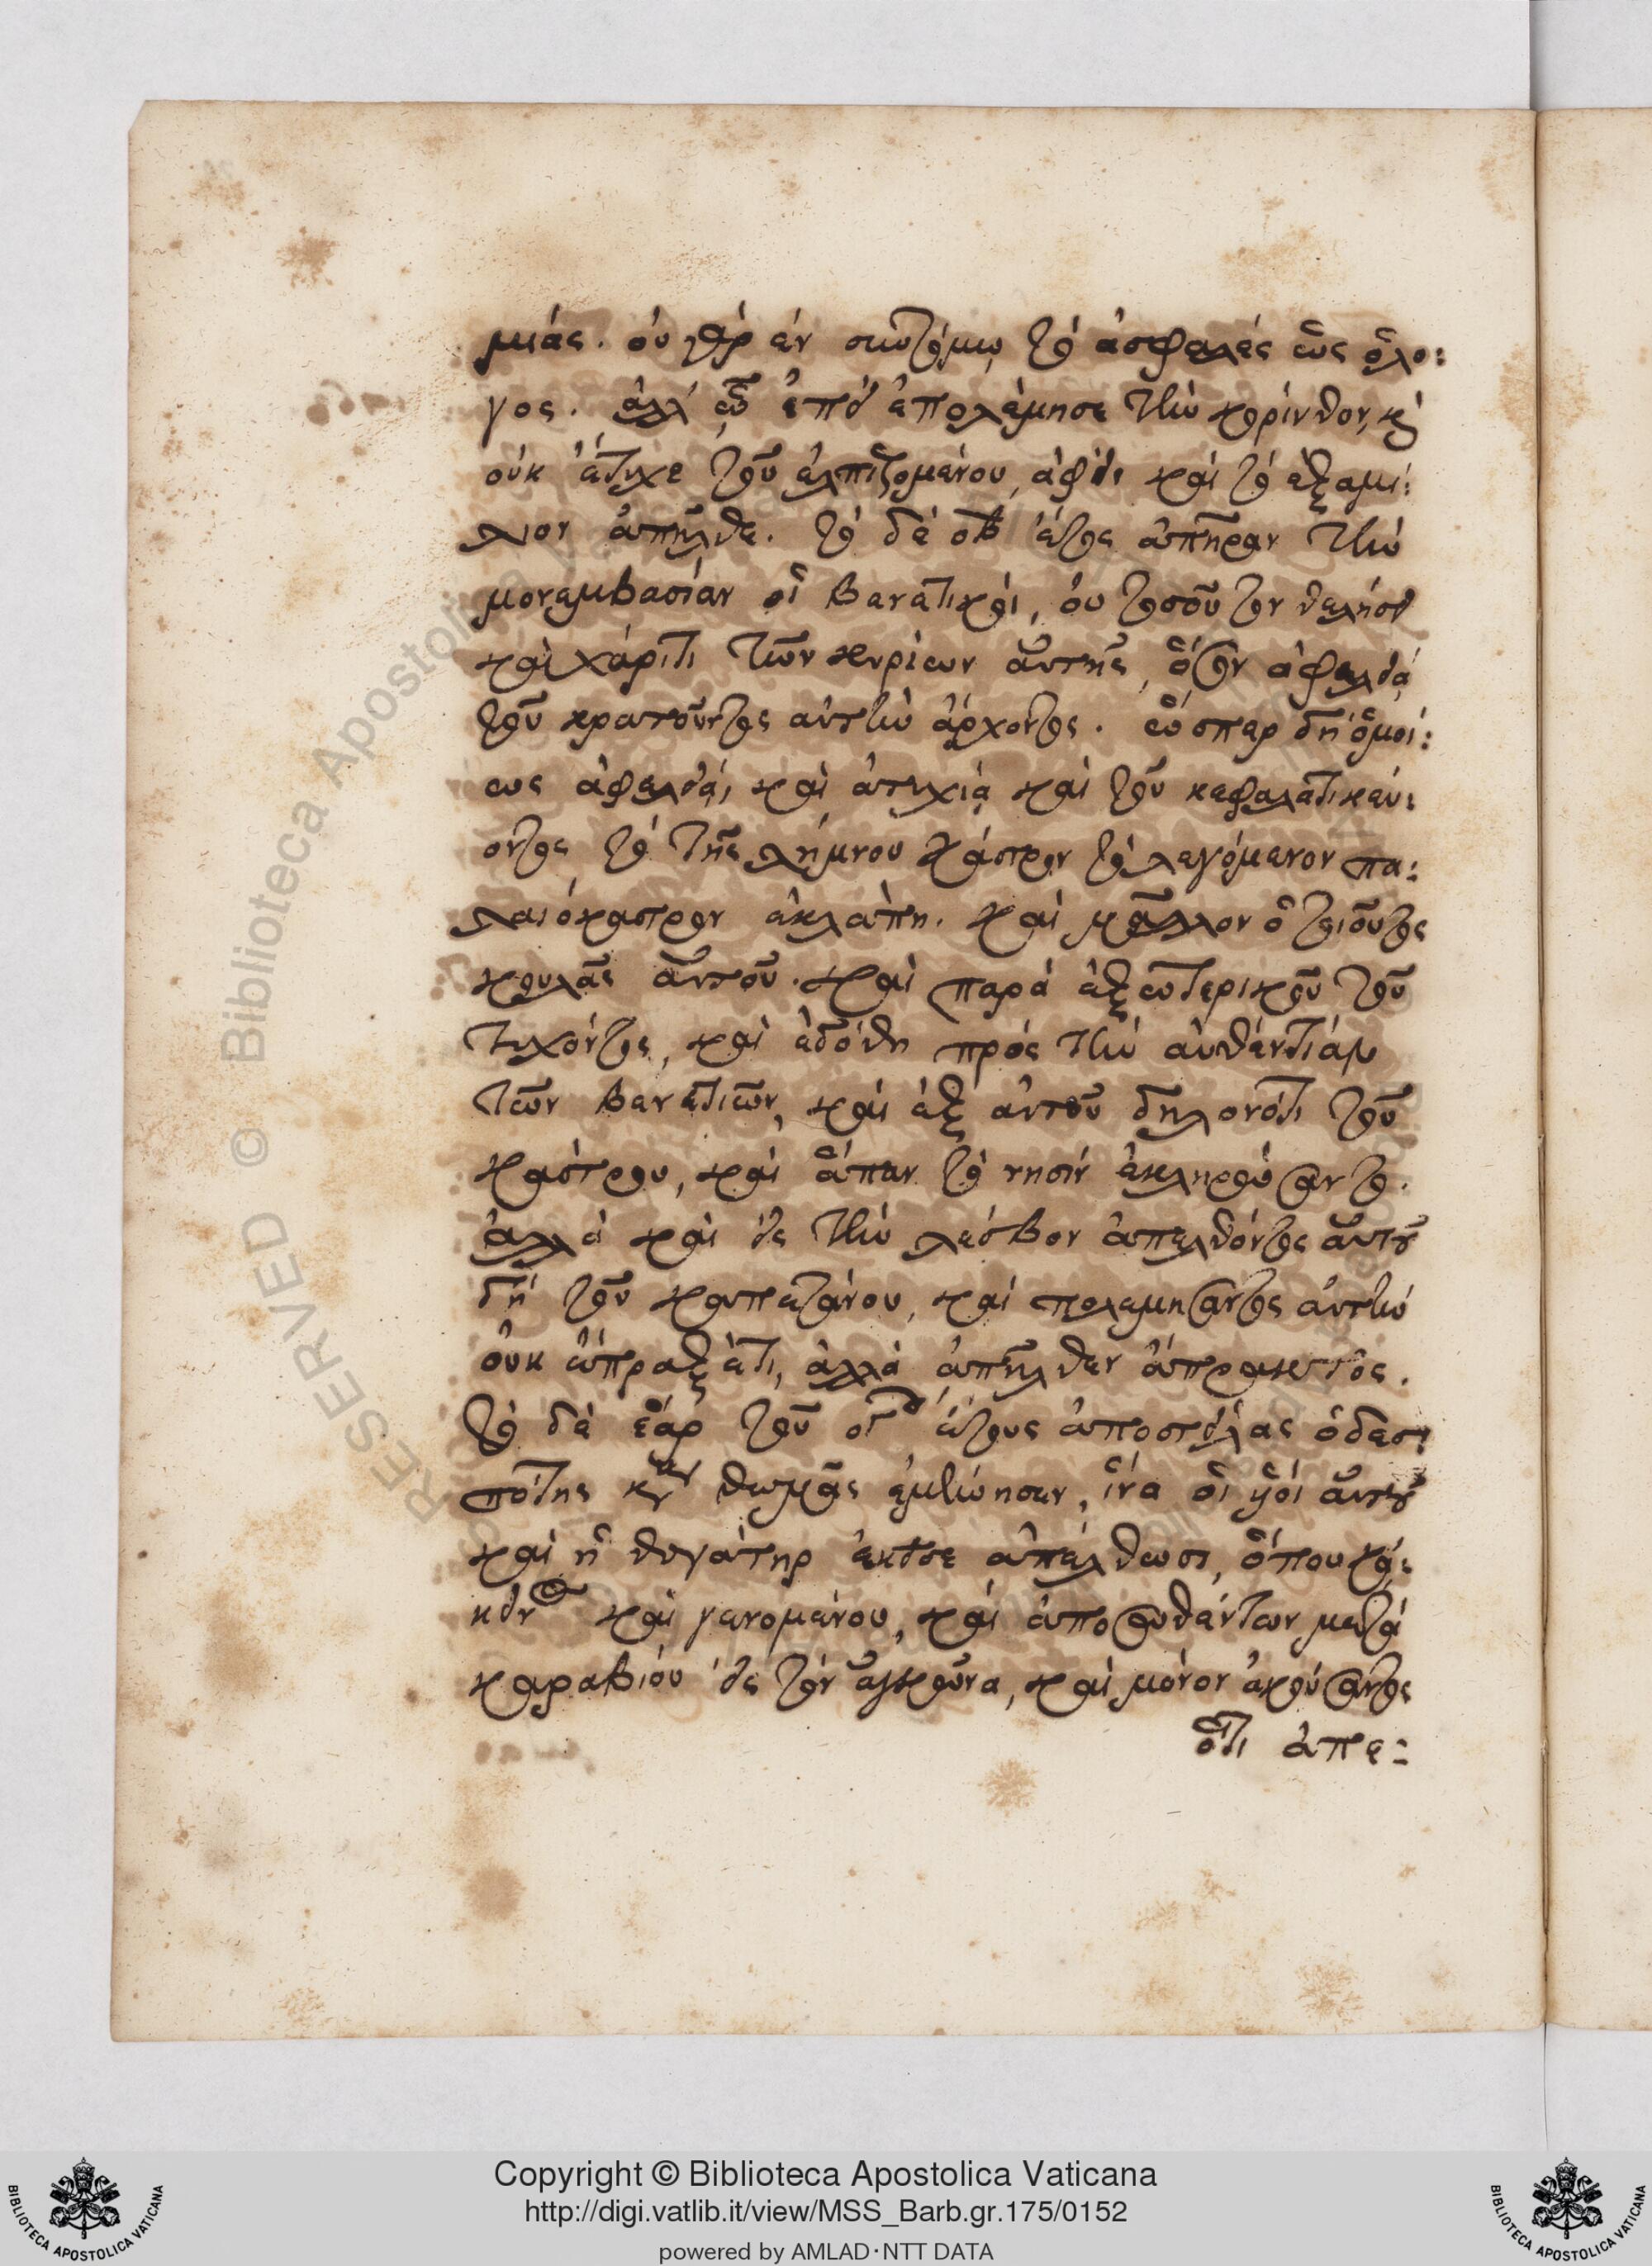 μιάς. οὐ γὰρ ἐν συντόμῳ τὸ ἀσφαλὲς ὡς ὁ λό:
γος. ἀλλ' ὡς ἐπεὶ ἐπολέμησε τὴν κόρινθον, κ
οὐκ ἔτυχε τοῦ ἐλπιζομένου, ἀφεὶς καὶ τὸ ἑξαμί:
λιον ἀπῆλθε. τὸ δὲ οβ ἔτος ἀπῆραν τὴν
μονεμβασίαν οἱ βενετικοί, οὐ τοσοῦτον θελήσει
καὶ χάριτι τῶν κυρίων αὐτῆς, ὅσον ἀφελεία
τοῦ κρατοῦντος αὐτὴν ἄρχοντος. ὥσπερ δὴ ὁμοί:
ως ἀφελεία, καὶ ἀτυχία καὶ τοῦ κεφαλατικεύ:
οντος τὸ τῆς λήμνου κάστρον τὸ λεγόμενον πα:
λαιόκαστρον ἐκλάπη. καὶ μᾶλλον ὁ τοιοῦτος
κουλᾶς αὐτοῦ. καὶ παρὰ ἐξωτερικοῦ τοῦ
τυχόντος, καὶ ἐδόθη πρὸς τὴν αὐθεντίαν
τῶν βενετιῶν, καὶ ἐξ αὐτοῦ δηλονότι τοῦ
κάστρου, καὶ ἅπαν τὸ νησὶν ἐκληρώσαντο.
ἀλλὰ καὶ εἰς τὴν λέσβον ἀπελθόντος αὐτοῦ
δὴ τοῦ καπετάνου, καὶ πολεμήσαντος αὐτὴν
οὐκ εὔπραξέ τι, ἀλλὰ ἀπῆλθεν ἄπρακτος.
τὸ δὲ ἔαρ τοῦ ογου ἔτους ἀποστείλας ὁ δεσ:
πότης κὺρ θωμᾶς ἐμήνησεν, ἵνα οἱ υἱοὶ αὐτοῦ
καὶ ἡ θυγάτηρ ἐκεῖσε ἀπέλθωσι, ὅπου κά:
κεῖνος καὶ γενομένου, καὶ ἀποσωθέντων μετὰ
καραβίου εἰς τὸν ἀγκῶνα, καὶ μόνον ἀκούσαντος
ὅτι ἀπε:
Copyright © Biblioteca Apostolica Vaticana
http://digi.vatlib.it/view/MSS_Barb.gr.175/0152
powered by AMLAD·NTT DATA
BIBLIOTECA APOSTOLICA VATICANA
BIBLIOTECA APOSTOLICA VATICANA